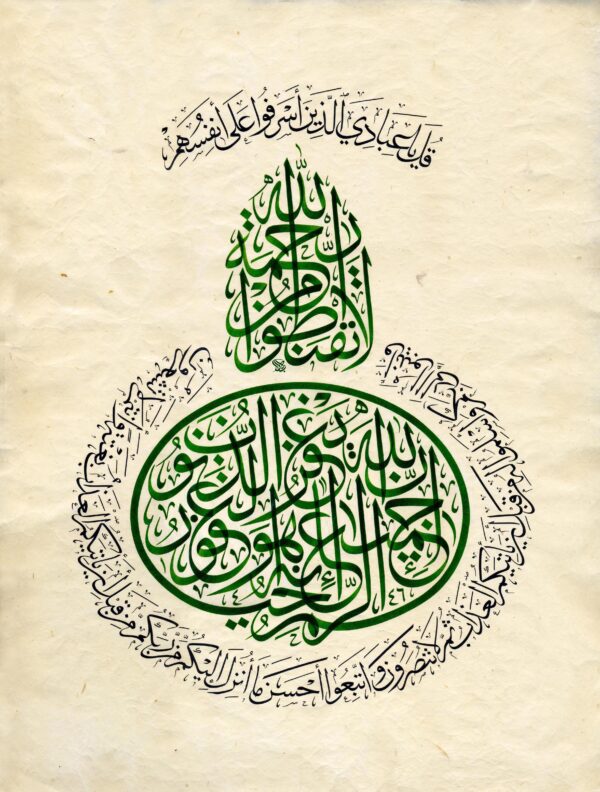 قُلْ يَا عِبَادِيَ الَّذِينَ أَسْرَفُوا عَلَى أَنفُسِهِمْ
لا تقنطوا من رحمة الله
إن الله يغفر الذنوب جميعا إنه هو الغفور الرحيم
وأنيبوا إلى ربكم وأسلموا له من قبل أن يأتيكم العذاب ثم لا تنصرون واتبعوا أحسن ما أنزل إليكم من ربكم من قبل أن يأتيكم العذاب بغتة وأنتم لا تشعرون